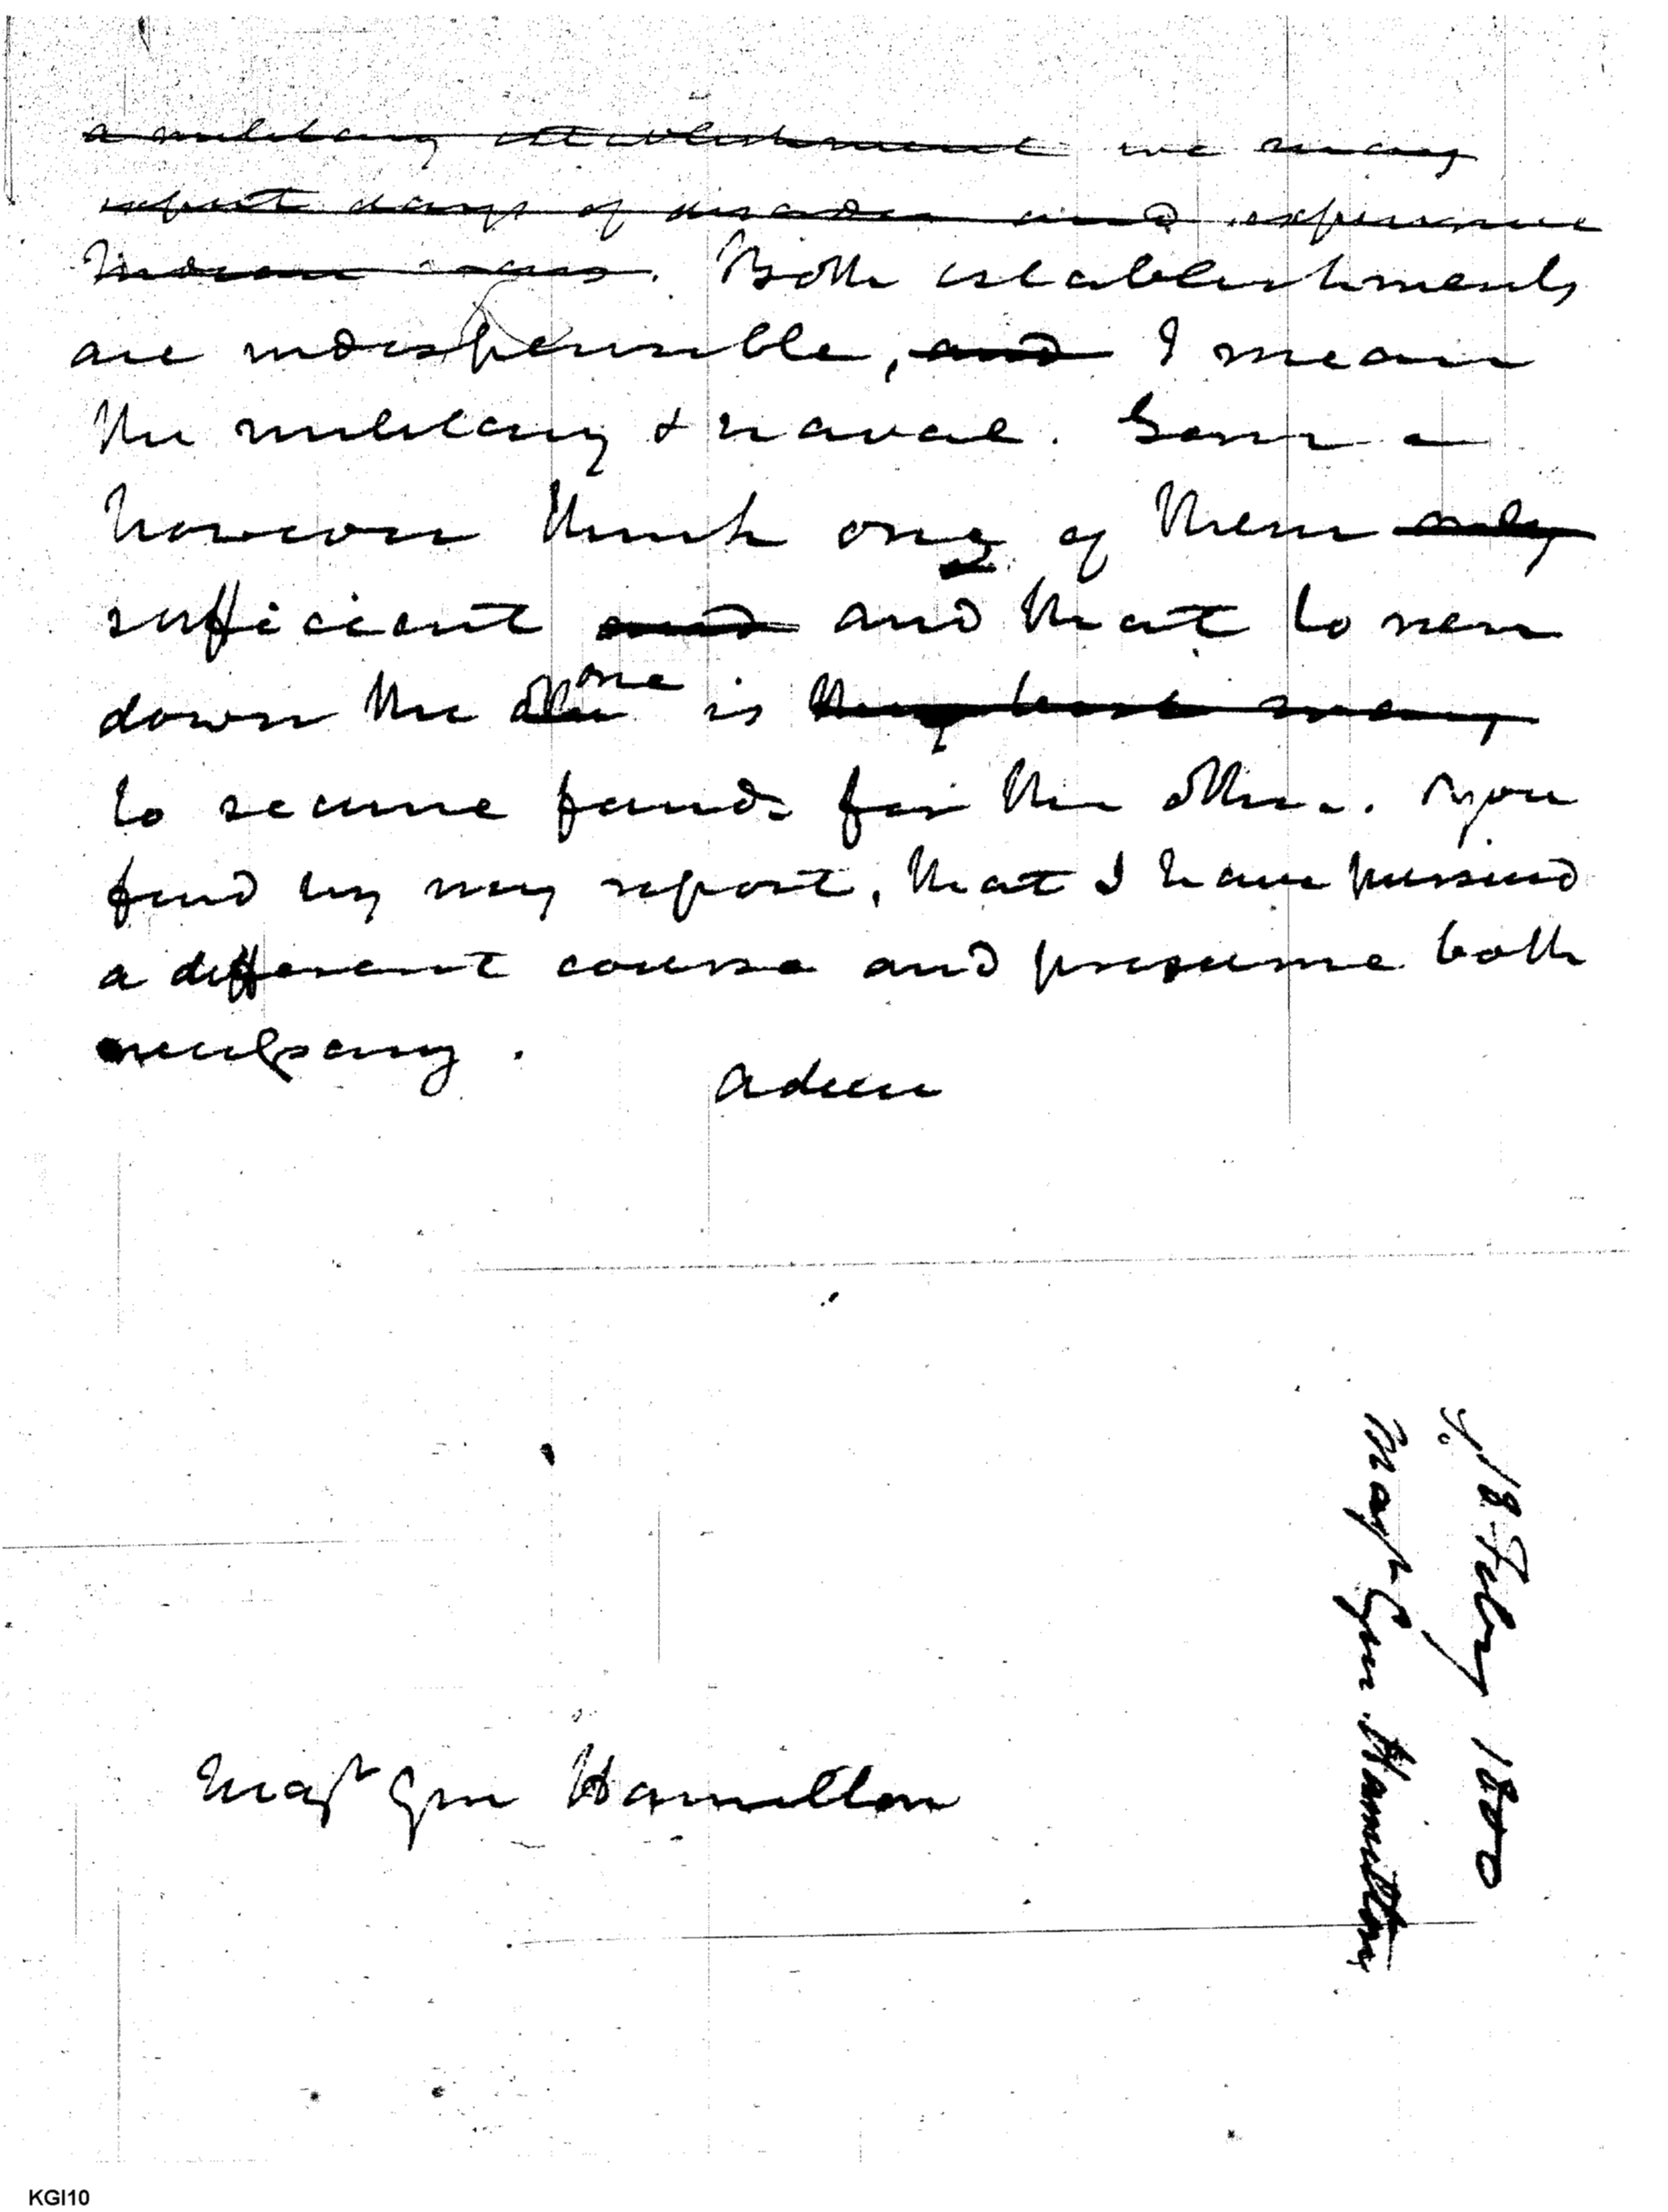 a military establishment we may
expect days of disorder and expensive
Indian wars. Both establishments
are indispensible, and I mean
the military & naval. Some
however think one of them only
sufficient and and that to run
down the other one is the best way
to secure funds for the other. You
find by my report, that I have pursued
a different course and presume both
necessary.
adieu
18 Feby 1800
Majr Gen Hamilton
Majr Gen Hamilton
KGI10